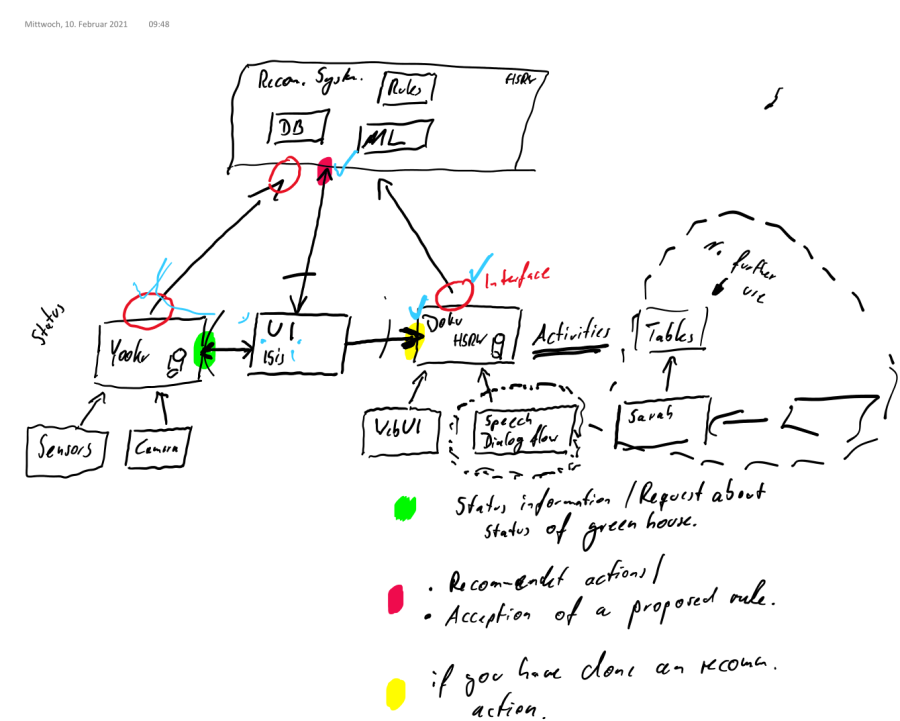 Mittwoch, 10. Februar 2021 09:48
Recom. System.
HSRW
Rules
DB
ML
Interface
n. further use
Status
Yookr
UI
isis
Doku
HSRW
Activities
Tables
Sensors
Camera
WebUI
Speech
Dialog flow
Sarah
Status information / Request about
status of green house.
· Recommendet actions /
· Acception of a proposed rule.
if you have done an recomm.
action.